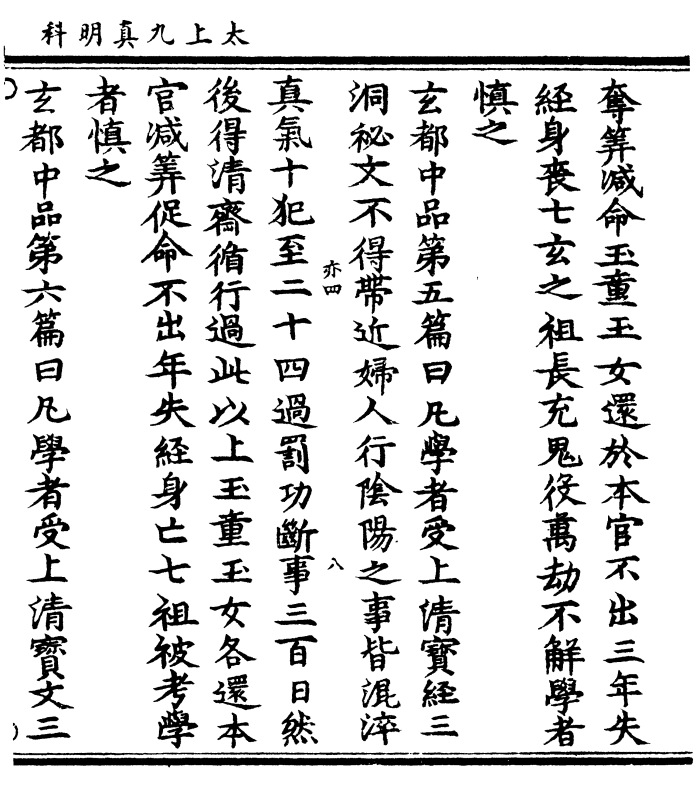 太上九真明科
奪筭減命玉童玉女還於本官不出三年失
經身喪七玄之祖長充鬼役萬劫不解學者
慎之
玄都中品第五篇曰凡學者受上清寳經三
洞祕文不得帶近婦人行陰陽之事皆混淬
亦四
八
真氣十犯至二十四過罰功斷事三百日然
後得清齋循行過此以上玉童玉女各還本
官减筭促命不出年失經身亡七祖被考學
者慎之
玄都中品第六篇曰凡學者受上清寳文三